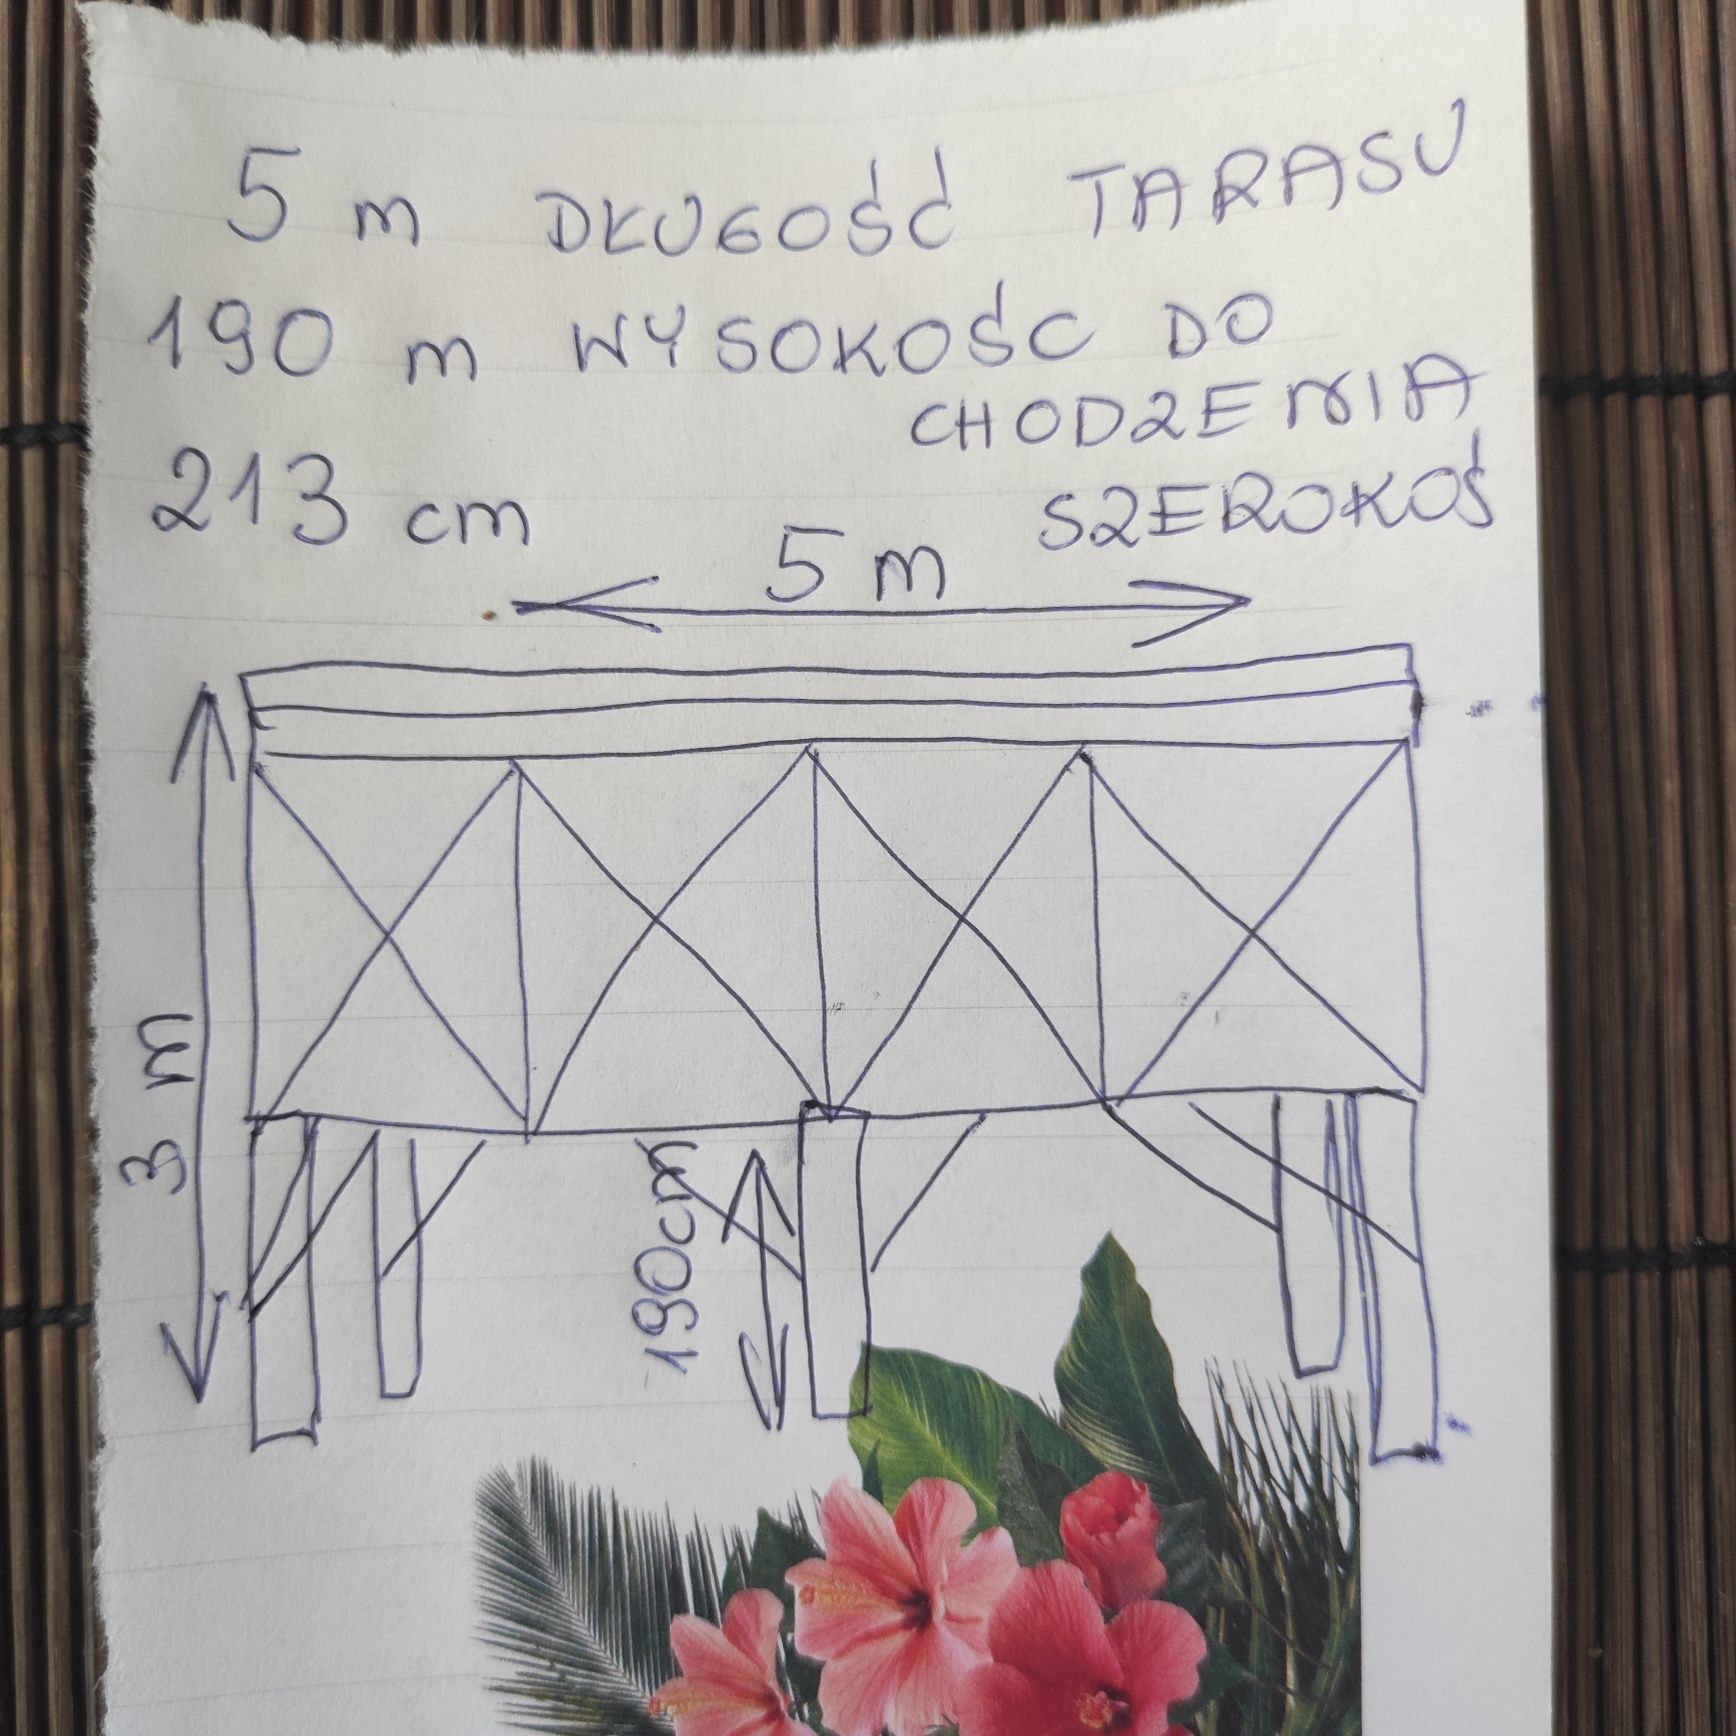 5 m DŁUGOŚĆ TARASU
190 m WYSOKOŚC DO
CHODZENIA
213 cm SZEROKOŚ
5 m
3 m
190cm